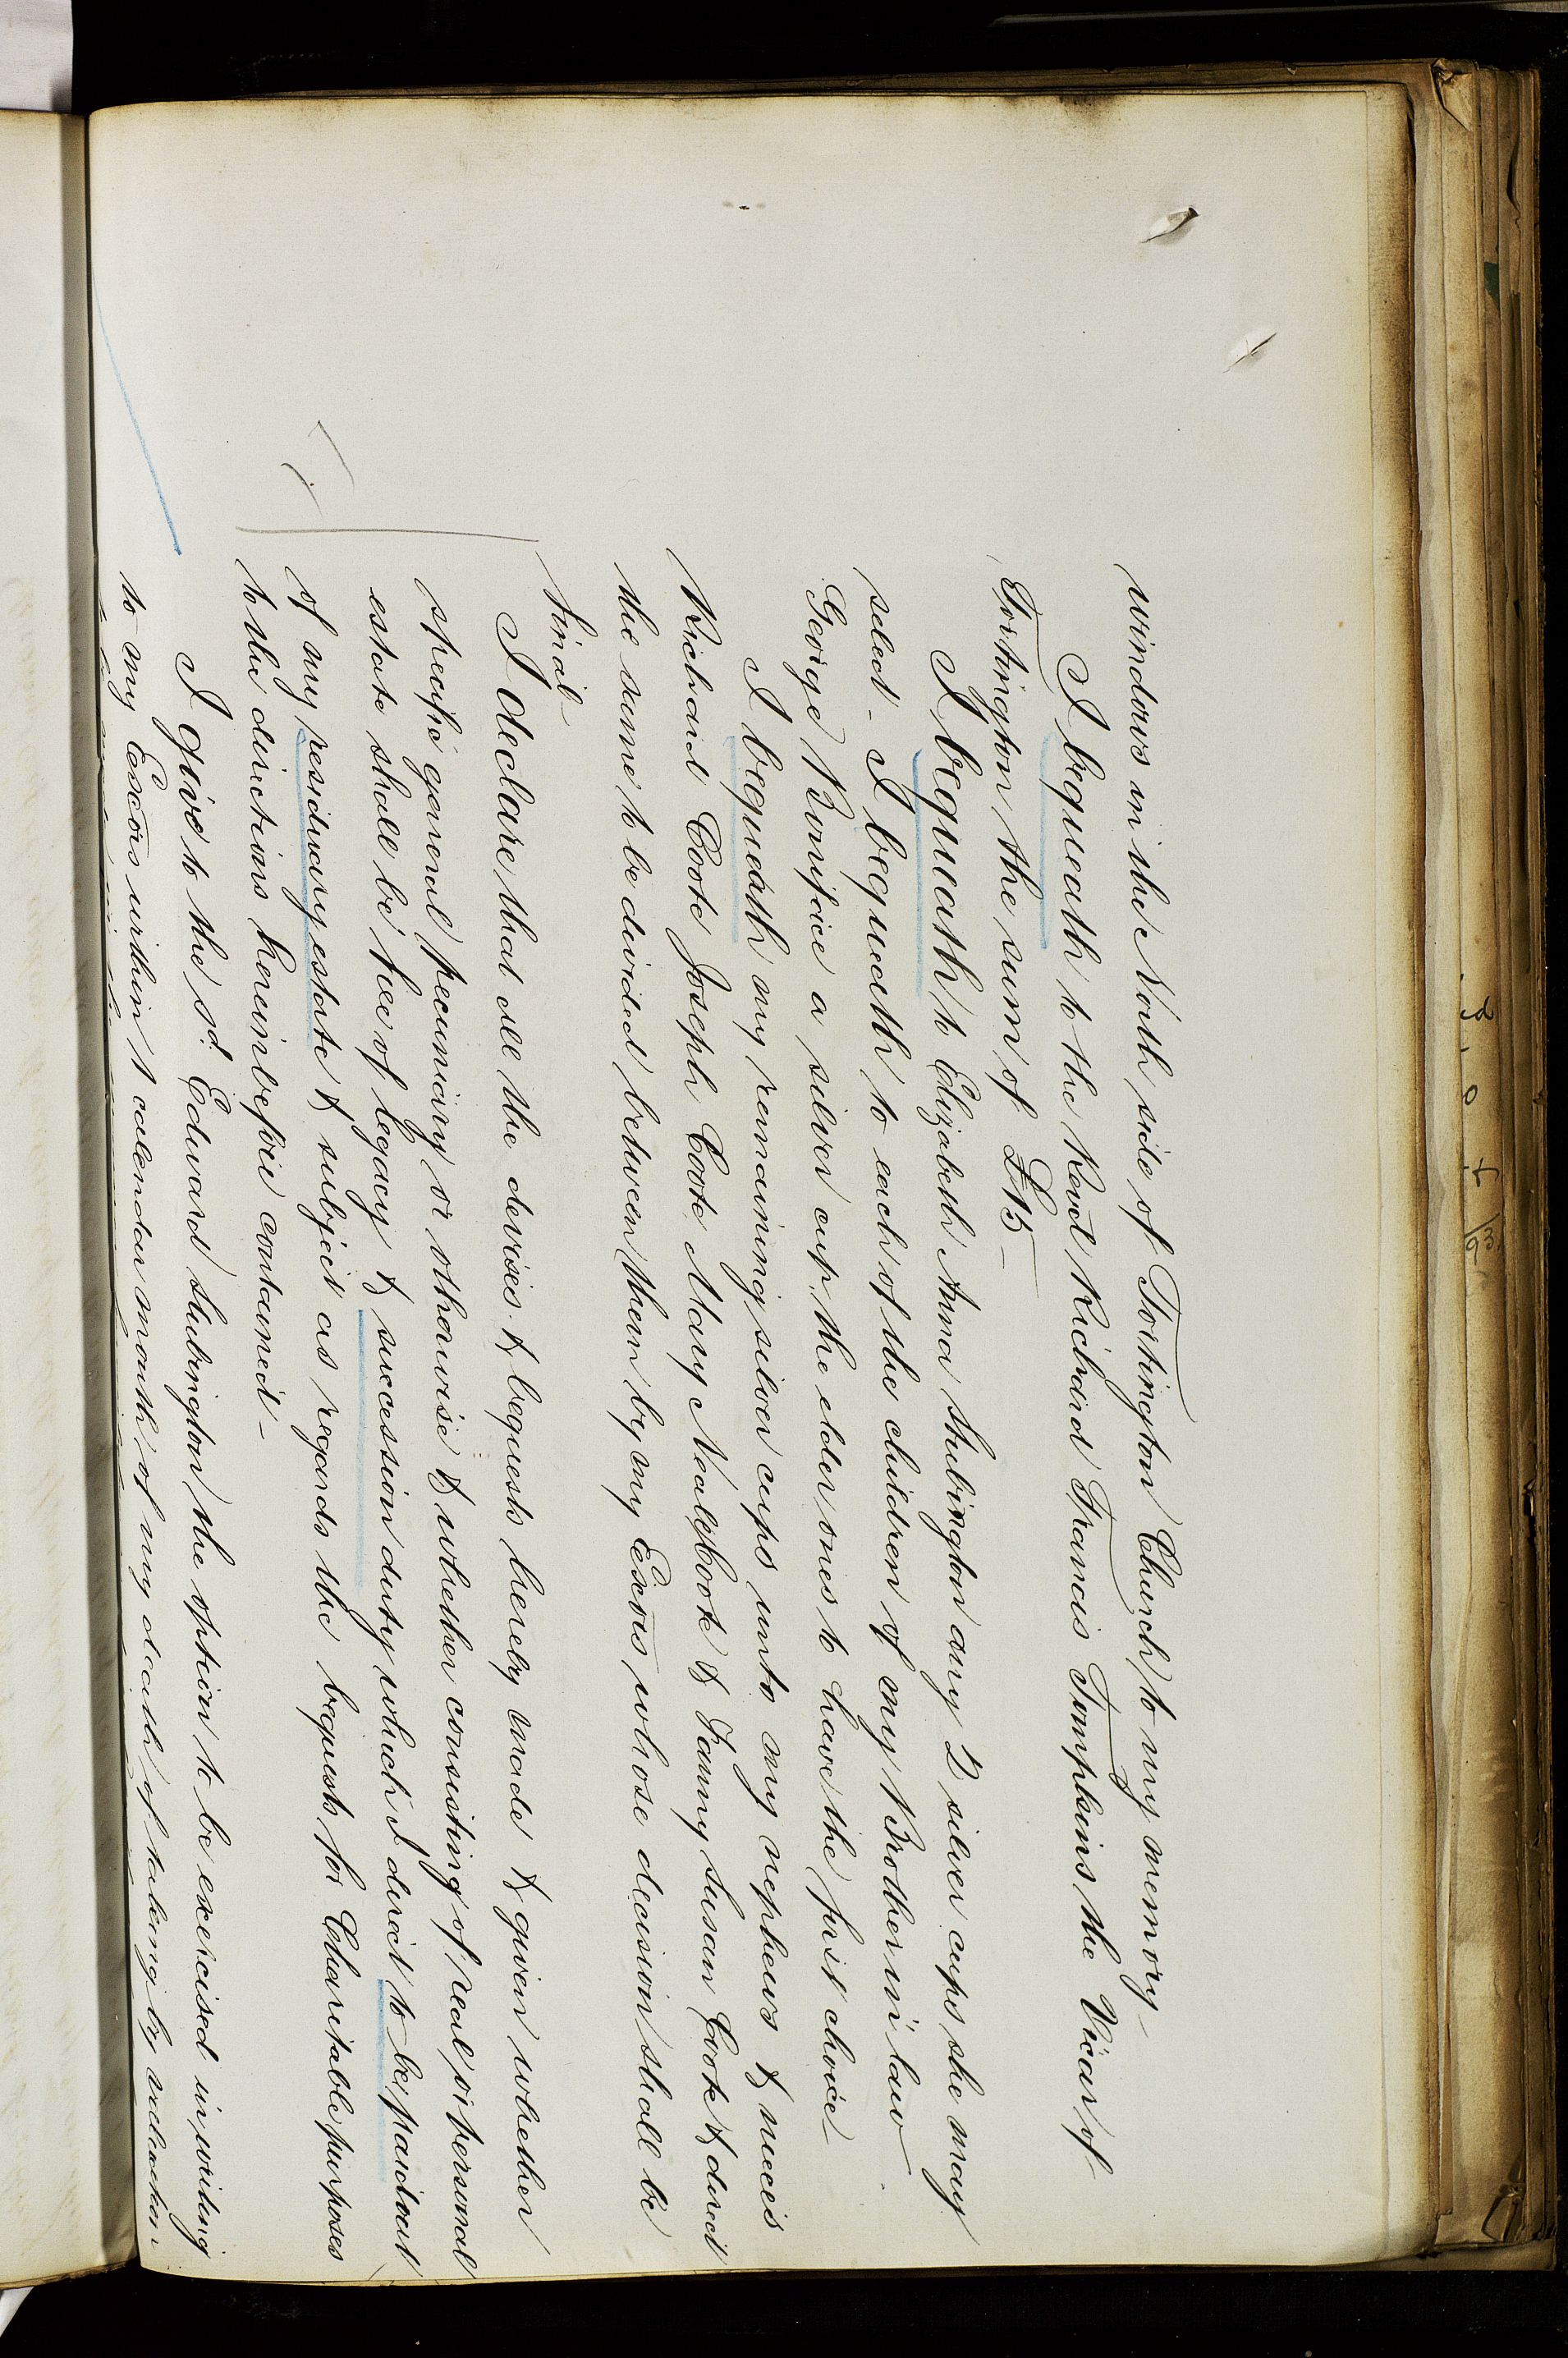 windows in the North side of Tortington Church to my memory –
I bequeath to the Revd Richard Francis Tompkins the Vicar of
Tortington the sum of £15 –
I bequeath to Elizabeth Anna Stubington any 2 silver cups she may
select – I bequeath to each of the children of my Brother in law
George Boniface a silver cup the elder ones to have the first choice –
I bequeath my remaining silver cups unto my nephews & nieces
Richard Coote Joseph Coote Mary Neale Coote & Fanny Susan Coote & direct
the same to be divided between them by my Exōrs whose decision shall be
final –
I declare that all the devises & bequests hereby made & given whether
specific general pecuniary or otherwise & whether consisting of real or personal
estate shall be free of legacy & succession duty which I direct to be paid out
of my residuary estate & subject as regards the bequests for Charitable purposes
to the directions hereinbefore contained –
I give to the sd. Edward Stubington the option to be exercised in writing
to my Exōrs within 1 calendar month of my death of taking by valuation